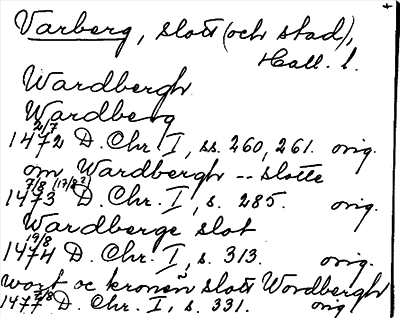 Varberg, slott (och stad),
Hall. l.
Wardbergh
Wardberg
1472 2/7 D. Chr. I, ss. 260, 261. orig.
om Wardbergh -- slotte
1473 7/8 (17/8?) D. Chr. I, s. 285. orig.
Wardberge slot
1474 19/8 D. Chr. I, s. 313. orig.
wort oc kronen slott Wordbergh
1477 2/8 D. Chr. I, s. 331. orig